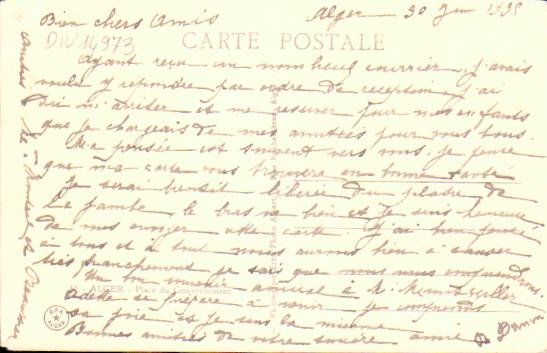 Bien chers Amis Alger 30 Juin 1935
DIV 14973
CARTE POSTALE
Ayant reçu un nombreux courrier, j'avais
voulu y répondre par ordre de reception, j'ai
dû m'arrêter et me reserver pour mes enfants
que je chargeais de mes amitiés pour vous tous.
Ma pensée est souvent vers vous, je pense
que ma carte vous trouvera en bonne santé
Je serai bientôt libérée du platre de
la jambe, le bras va bien et je suis heureuse
de vous envoyer cette carte. J'ai bien pensé
à tous et à tout nous aurons bien à causer
très franchement je sais que nous nous comprendrons.
Un bon souvenir amical à M.
ALGER - Place du Gouvernement
se prépare à venir je comprends
sa joie et je sens la mienne
Bonnes amitiés de votre sincère amie
ALGER